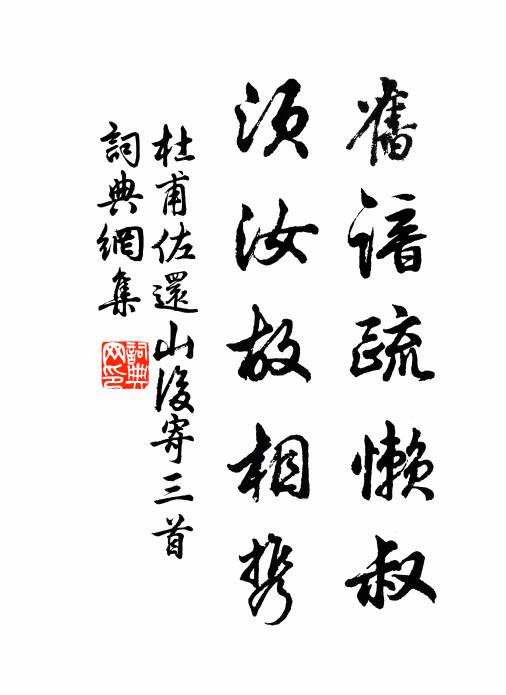 舊諳疏懶叔
須汝故相携
杜甫佐還山後寄三首
詞典網集
詞典網印